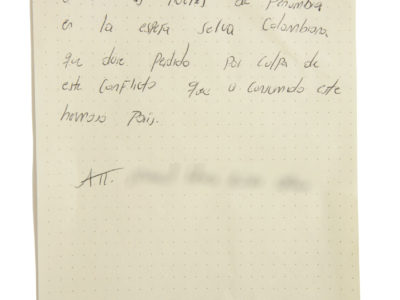 de Penumbra
en la espesa selva Colombiana
que dure Perdido por culpa de
este Conflicto que a consumido este
hermoso Pais.
Att.